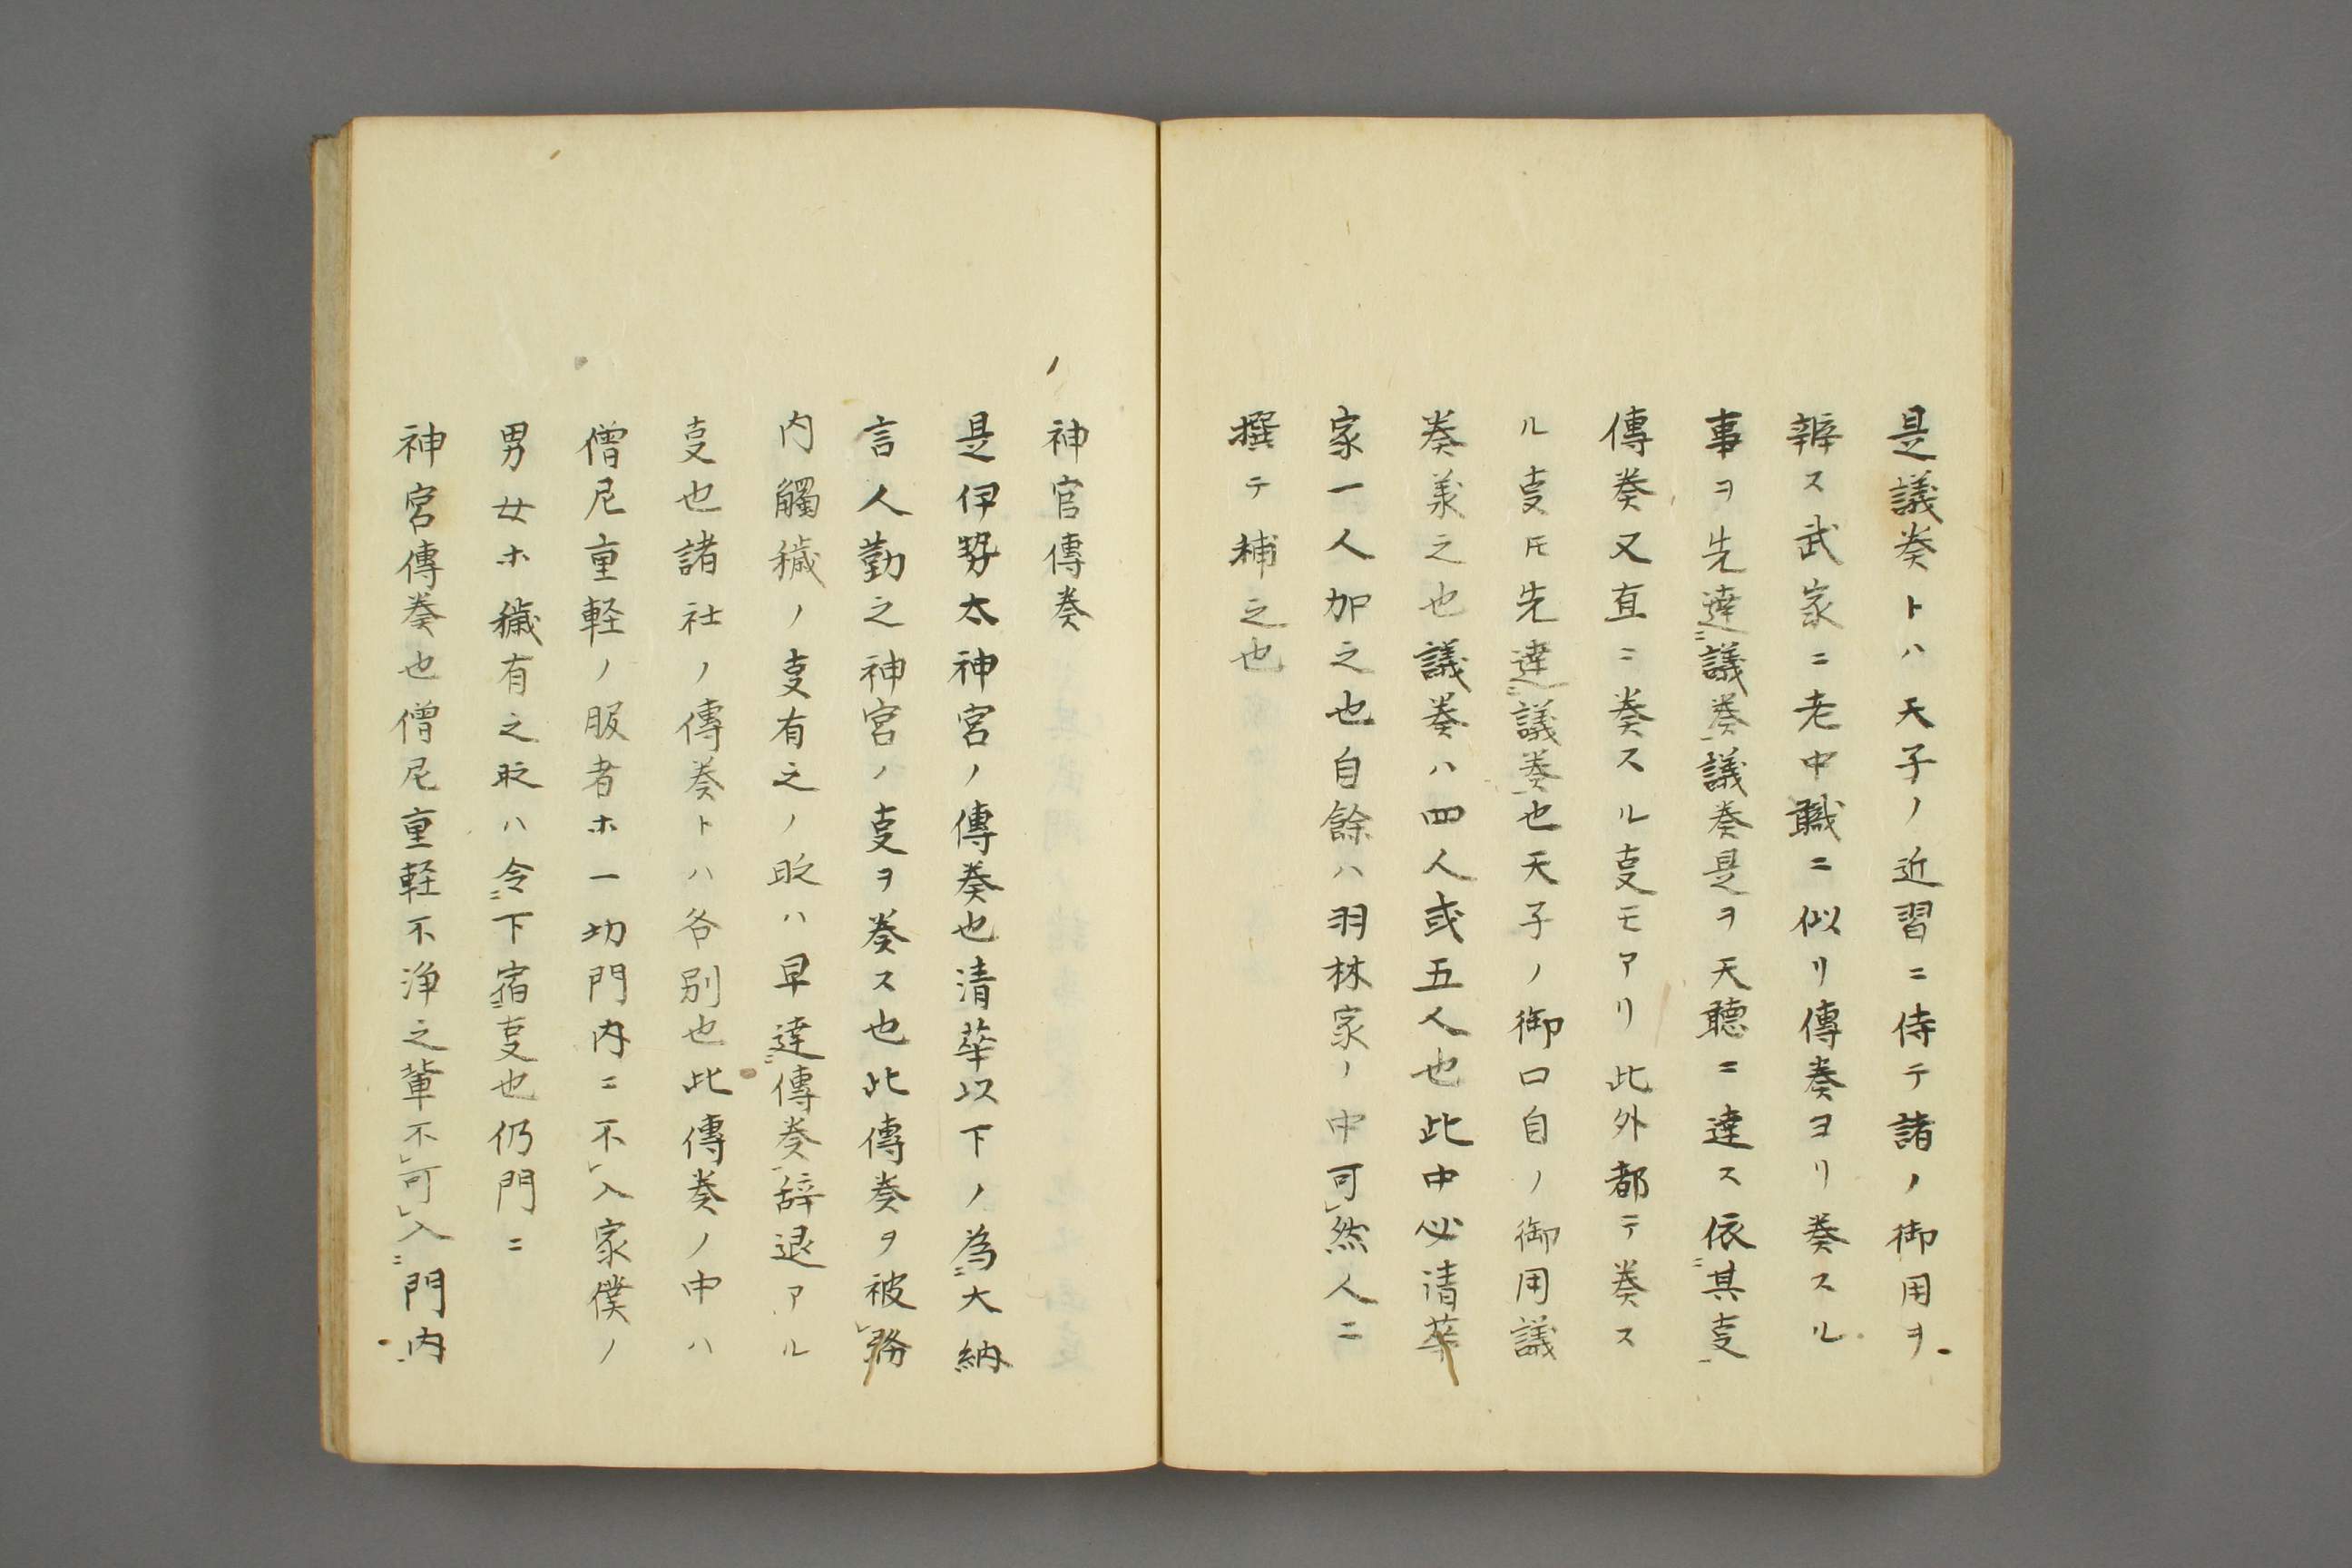 是議奏トハ天子ノ近習ニ侍テ諸ノ御用ヲ
辨ス武家ニ老中職ニ似リ傳奏ヨリ奏スル
事ヲ先達ニ議奏議奏是ヲ天聽ニ達ス依ニ其叓一
傳奏又直ニ奏スル叓モアリ此外都テ奏ス
ル叓㕝先達ニ議奏也天子ノ御口自ノ御用議
奏羕之也議奏ハ四人或五人也此中必清華
家一人加之也自餘ハ羽林家ノ中可レ然人ニ
撰テ補之也
神官傳奏
是伊勢太神宮ノ傳奏也清華以下ノ為ニ大納
言人勤之神宮ノ叓ヲ奏ス也此傳奏ヲ被レ務
内觸穢ノ叓有之ノ時ハ早達ニ傳奏一辞退アル
叓也諸社ノ傳奏トハ各別也此傳奏ノ中ハ
僧尼重軽ノ服者ホ一切門内ニ不レ入家僕ノ
男女ホ穢有之時ハ令ニ下宿一叓也仍門ニ
神宮傳奏也僧尼重軽不浄之輩不レ可レ入ニ門内一